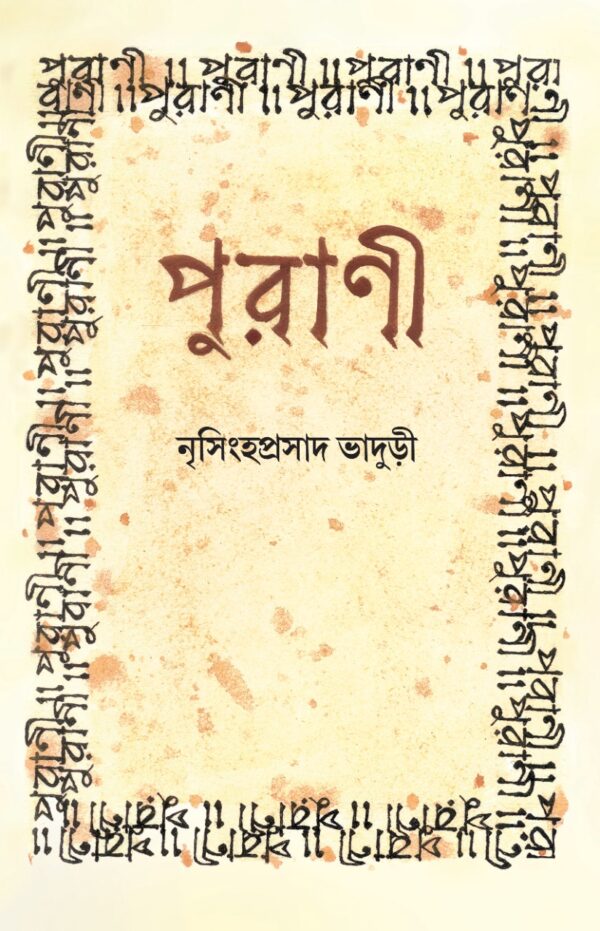 পুরাণী ॥ পুরাণী ॥ পুরাণী ॥ পুরা
রাণী ॥ পুরাণী ॥ পুরাণী ॥ পুরাণ
পুরাণী
নৃসিংহপ্রসাদ ভাদুড়ী
পুরাণী ॥ পুরাণী ॥ পুরাণী ॥ পুরাণী ॥ পুরাণী
পুরাণী ॥ পুরাণী ॥ পুরাণী ॥ পুরাণী ॥ পুরাণী